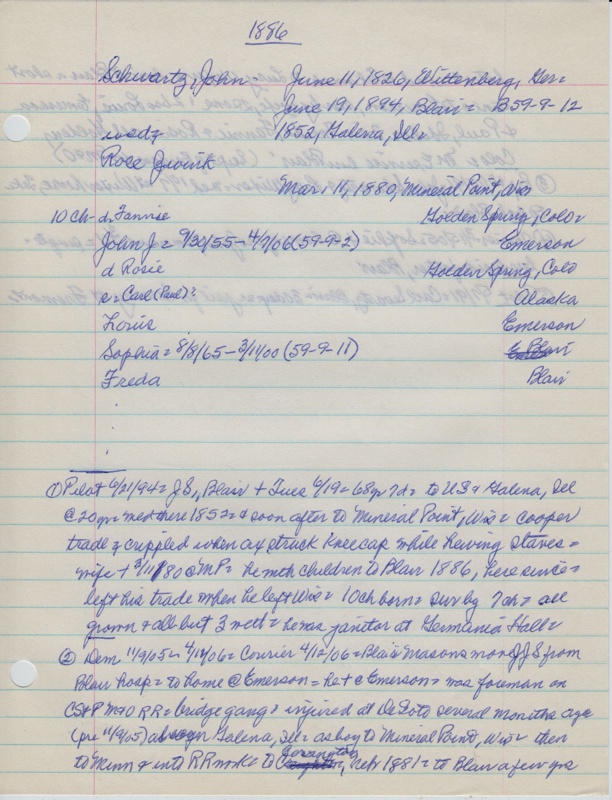 1886
Schwartz, John - June 11, 1826, Wittenberg, Ger=
June 19, 1894, Blair = B59-9-12
wed= 1852, Galena, Ill=
Rose Zwink
Mar. 11, 1880, Mineral Point, Wis
10 ch - d. Fannie Golden Spring, Colo=
John J = 9/30/55-4/9/06 (59-9-2) Emerson
d Rosie Golden Spring, Colo
s = Carl (Paul)? Alaska
Louis Emerson
Sophia = 8/8/65-3/11/00 (59-9-11) Blair
Freda Blair
① Pilot 6/21/94 = J.S., Blair + Tues 6/19 = 68yr 7d = to US & Galena, Ill
@ 20yr = wed there 1852 = & soon after to Mineral Point, Wis = Cooper
trade & crippled when ax struck kneecap while hewing staves =
wife + 3/11/80 @ MP = he moth children to Blair 1886, here since =
left his trade when he left Wis = 10 ch born = surv by 7 ch = all
grown & all but 3 wed = he was janitor at Germania Hall =
② Dem 11/9/05 4/12/06 = Courier 4/12/06 = Blair Masons mov JJS from
Blair hosp = to home @ Emerson = he + @ Emerson = was foreman on
CStPM&O RR = bridge gang & injured at DeSoto several months ago
(pre 11/9/05) Galena, Ill = as boy to Mineral Point, Wis = then
to Minn & into RR wk = to Covington, Neb 1881 = to Blair a few yrs